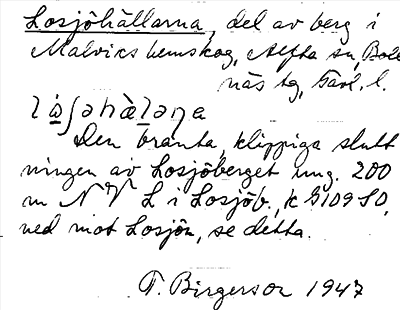 Losjöhällarna, del av berg i
Malvicks hemskog, Alfta sn, Boll
näs tg, Gävl. l.
Den branta, klippiga slutt
ningen av Losjöberget ung. 200
m N V L i Losjöb., k G109 SO,
ned mot Losjön, se detta.
T. Birgerson 1947